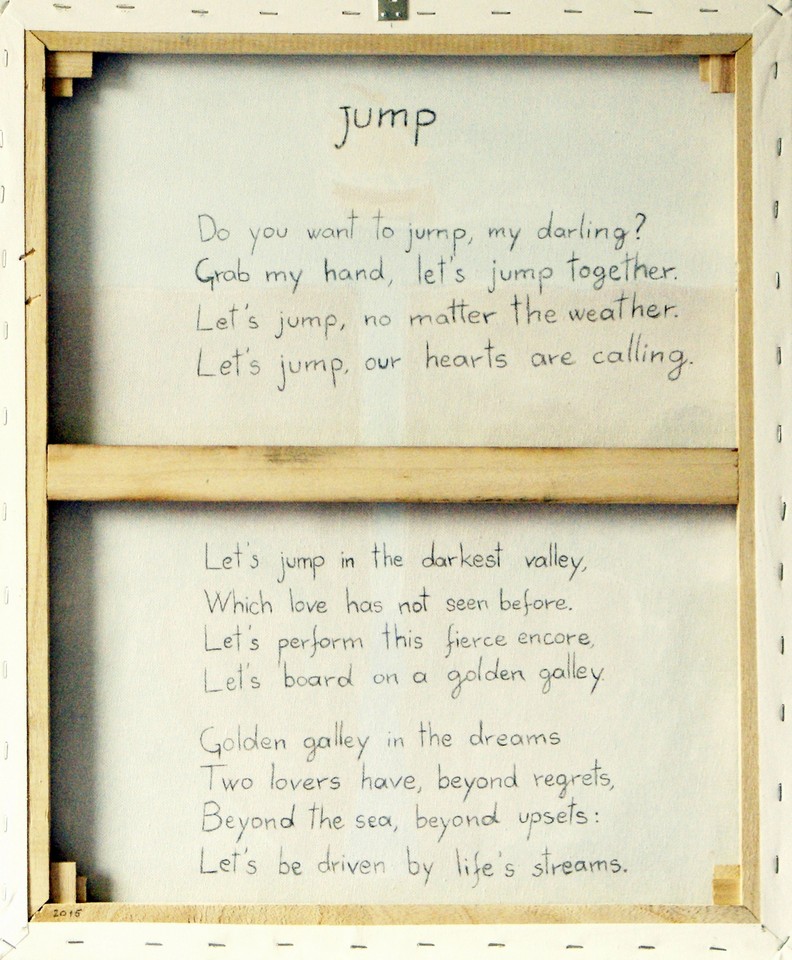 Jump
Do you want to jump, my darling?
Grab my hand, let's jump together.
Let's jump, no matter the weather.
Let's jump, our hearts are calling.
Let's jump in the darkest valley,
Which love has not seen before.
Let's perform this fierce encore,
Let's board on a golden galley.
Golden galley in the dreams
Two lovers have, beyond regrets,
Beyond the sea, beyond upsets:
Let's be driven by life's streams.
2015